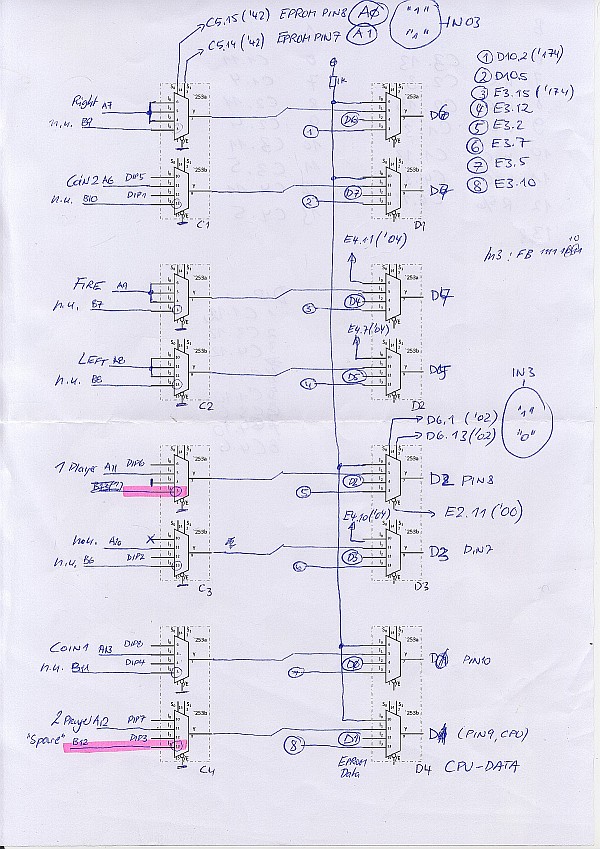 C5.15 ('42) EPROM PIN8 A0 "1" IN03
C5.14 ('42) EPROM PIN7 A1 "1"
1K
① D10.2 ('174)
② D10.5
③ E3.15 ('174)
④ E3.12
⑤ E3.2
⑥ E3.7
⑦ E3.5
⑧ E3.10
Right A7 253a D6 D6
n.u. B9 ①
Coin2 A6 DIP5 253b D7 D7
n.u. B10 DIP1 ②
C1 D1
E4.11 ('04)
In3: FB
FIRE A9 253a D4
n.u. B7 ③
E4.7 ('04)
LEFT A8 253b D5 D5
n.u. B8 ④
C2 D2
IN3
"1"
"0"
D6.1 ('02)
D6.13 ('02)
1 Player A11 DIP6 253a D2 D2 PIN8
⑤
E2.11 ('00)
E4.10 ('04)
n.u. A10 253b D3 D3 PIN7
n.u. B6 DIP2 ⑥
C3 D3
COIN1 A13 DIP8 253a D0 PIN10
n.u. B11 DIP4 ⑦
2 Player A12 DIP7 253b D1 D1 (PIN9, CPU)
"Spare" B12 DIP3 ⑧
C4 EPROM Data D4 CPU-DATA